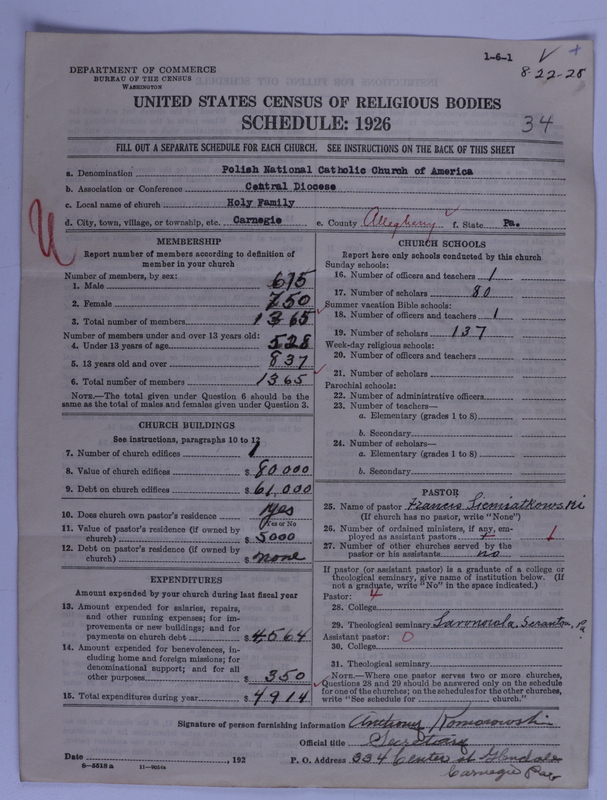 1-6-1
8-22-28
DEPARTMENT OF COMMERCE
BUREAU OF THE CENSUS
WASHINGTON
UNITED STATES CENSUS OF RELIGIOUS BODIES
SCHEDULE: 1926
34
FILL OUT A SEPARATE SCHEDULE FOR EACH CHURCH. SEE INSTRUCTIONS ON THE BACK OF THIS SHEET
a. Denomination Polish National Catholic Church of America
b. Association or Conference Central Diocese
c. Local name of church Holy Family
d. City, town, village, or township, etc. Carnegie e. County Allegheny f. State Pa.
MEMBERSHIP
Report number of members according to definition of
member in your church
Number of members, by sex:
1. Male 615
2. Female 750
3. Total number of members 1365
Number of members under and over 13 years old:
4. Under 13 years of age 528
5. 13 years old and over 837
6. Total number of members 1365
NOTE.—The total given under Question 6 should be the
same as the total of males and females given under Question 3.
CHURCH BUILDINGS
See instructions, paragraphs 10 to 12
7. Number of church edifices 1
8. Value of church edifices $ 80000
9. Debt on church edifices $ 61,000
10. Does church own pastor's residence yes
Yes or No
11. Value of pastor's residence (if owned by
church) $ 5000
12. Debt on pastor's residence (if owned by
church) $ none
EXPENDITURES
Amount expended by your church during last fiscal year
13. Amount expended for salaries, repairs,
and other running expenses; for im-
provements or new buildings; and for
payments on church debt $ 4564
14. Amount expended for benevolences, in-
cluding home and foreign missions; for
denominational support; and for all
other purposes $ 350
15. Total expenditures during year $ 4914
CHURCH SCHOOLS
Report here only schools conducted by this church
Sunday schools:
16. Number of officers and teachers 1
17. Number of scholars 80
Summer vacation Bible schools:
18. Number of officers and teachers 1
19. Number of scholars 137
Week-day religious schools:
20. Number of officers and teachers
21. Number of scholars
Parochial schools:
22. Number of administrative officers
23. Number of teachers—
a. Elementary (grades 1 to 8)
b. Secondary
24. Number of scholars—
a. Elementary (grades 1 to 8)
b. Secondary
PASTOR
25. Name of pastor Francis Siemiatkowski
(If church has no pastor, write "None")
26. Number of ordained ministers, if any, em-
ployed as assistant pastors
27. Number of other churches served by the
pastor or his assistants no
If pastor (or assistant pastor) is a graduate of a college or
theological seminary, give name of institution below. (If
not a graduate, write "No" in the space indicated.)
Pastor: 4
28. College
29. Theological seminary Savonorola Scranton, Pa
Assistant pastor: 0
30. College
31. Theological seminary
NOTE.—Where one pastor serves two or more churches,
Questions 28 and 29 should be answered only on the schedule
for one of the churches; on the schedules for the other churches,
write "See schedule for church."
Signature of person furnishing information Anthony Komorowski
Official title Secretary
Date , 192 P. O. Address 334 Center st Glendale
8-5518 a 11-9054a Carnegie Pa